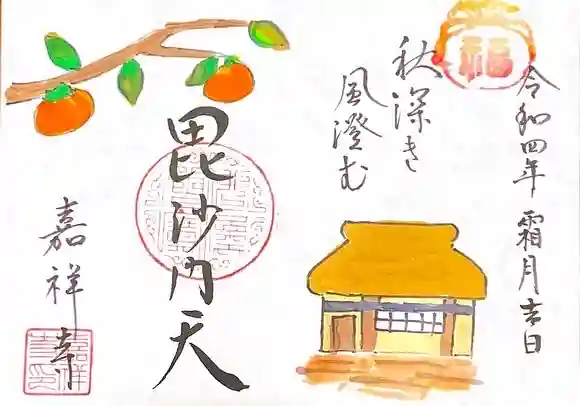 福
令和四年 霜月吉日
秋深き
風澄む
毘沙門天
嘉祥寺